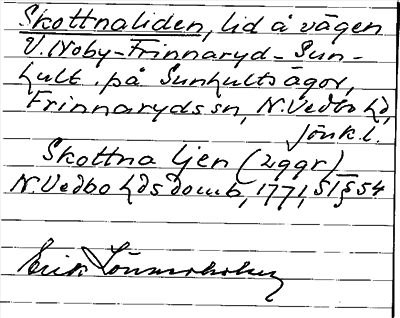 Skottnaliden, lid å vägen
V. Noby-Frinnaryd-Sun-
hult på Sunhults ägor,
Frinnaryds sn, N. Vedbo hd,
Jönk. l.
Skottna ljen (2 ggr)
N. Vedbo hds domb, 1771, § 54
Erik